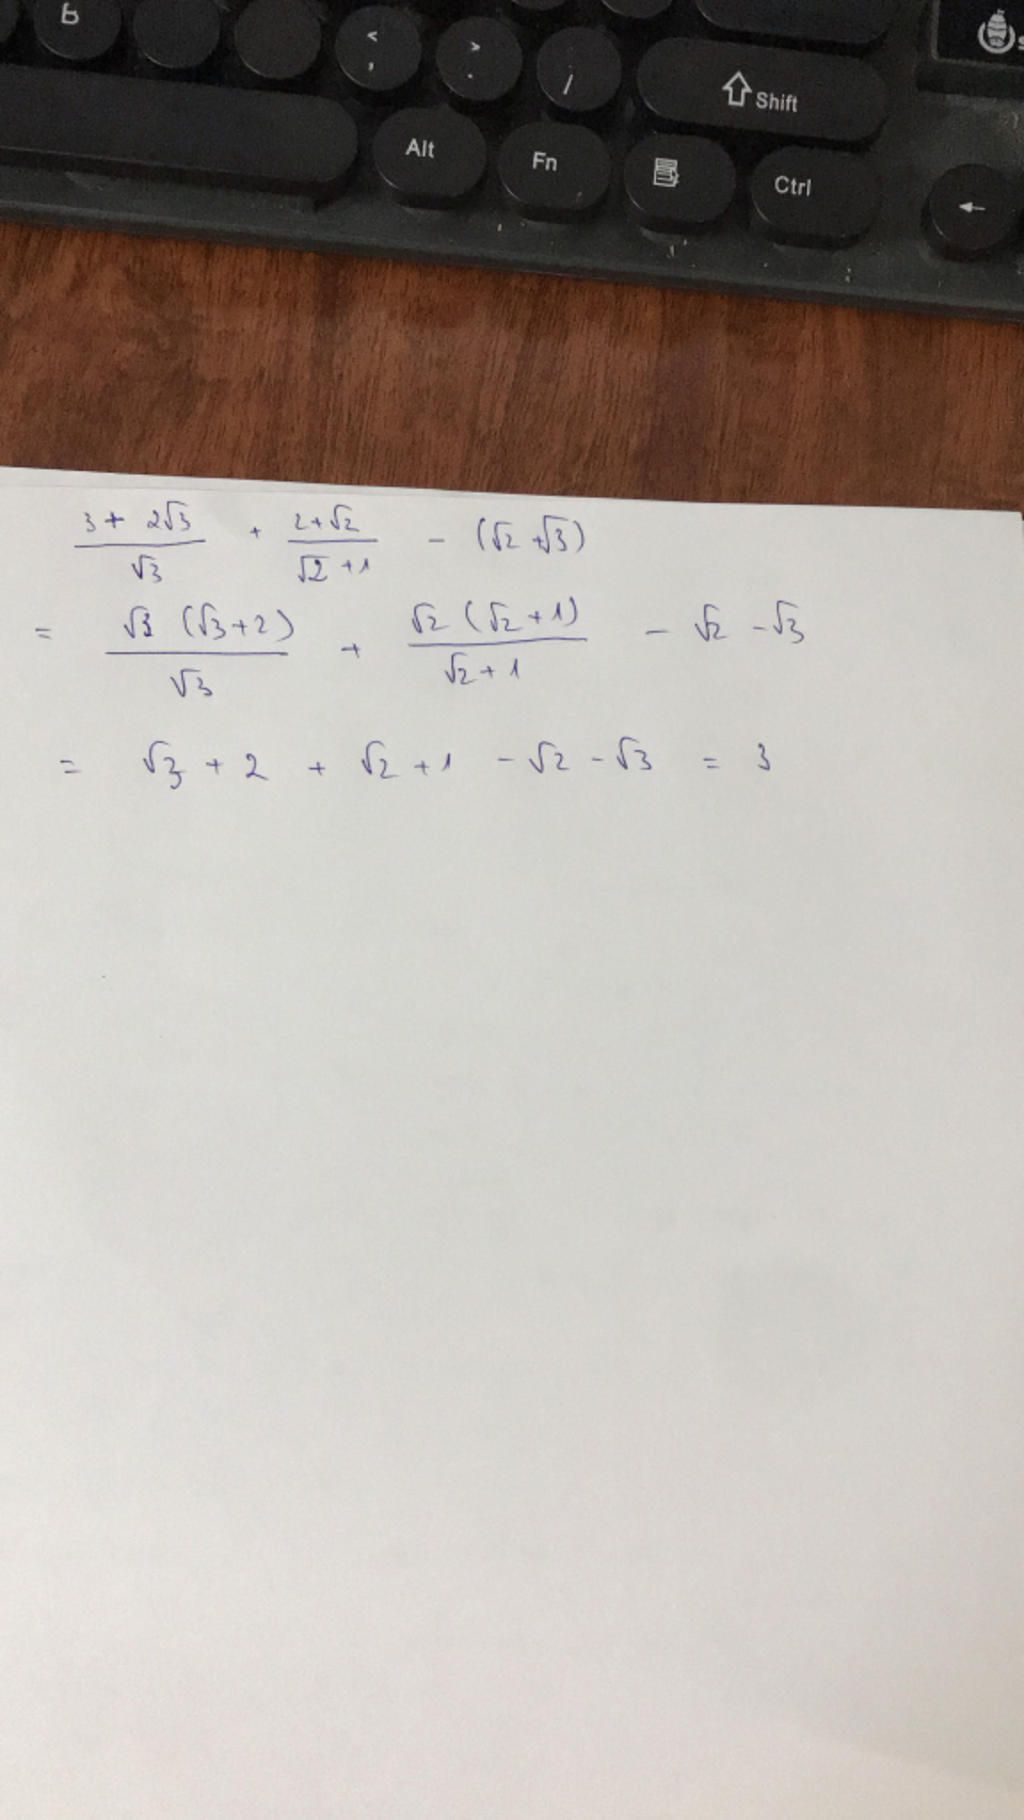 B < , > . / ⇧ Shift
Alt Fn Ctrl ←
(3 + 2√3)/√3 + (2+√2)/(√2+1) - (√2+√3)
= √3 (√3+2)/√3 + √2 (√2+1)/(√2+1) - √2 - √3
= √3 + 2 + √2 + 1 - √2 - √3 = 3